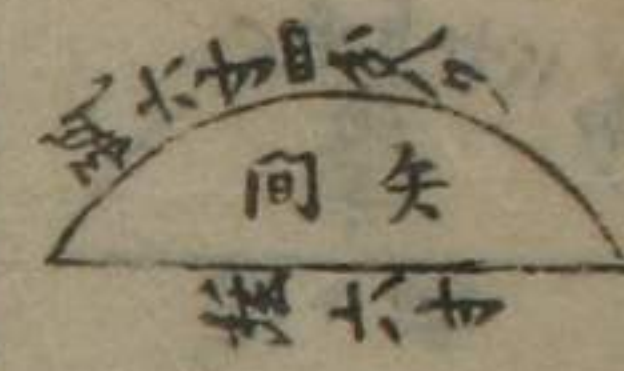 弧六寸四分
矢间
弦六寸